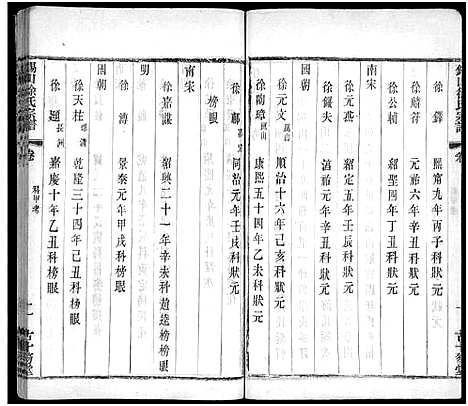 徐鐸 熙寧九年丙子科狀元
徐公輔 紹聖四年丁丑科狀元
南宋
徐元杰 紹定五年壬辰科狀元
徐儼夫 淳祐元年辛丑科狀元
國朝
徐元文 崑山 順治十六年己亥科狀元
徐陶璋 崑山 康熙五十四年乙未科狀元
徐郙 嘉定 同治元年壬戌科狀元
榜眼
南宋
徐嘉謀 紹興二十一年辛未科趙逵榜眼
明
徐溥 景泰元年甲戌科榜眼
國朝
徐天柱 德清 乾隆三十四年己丑科榜眼
徐頲 長洲 嘉慶十年乙丑科榜眼
錫山徐氏宗譜
卷
科甲考
二